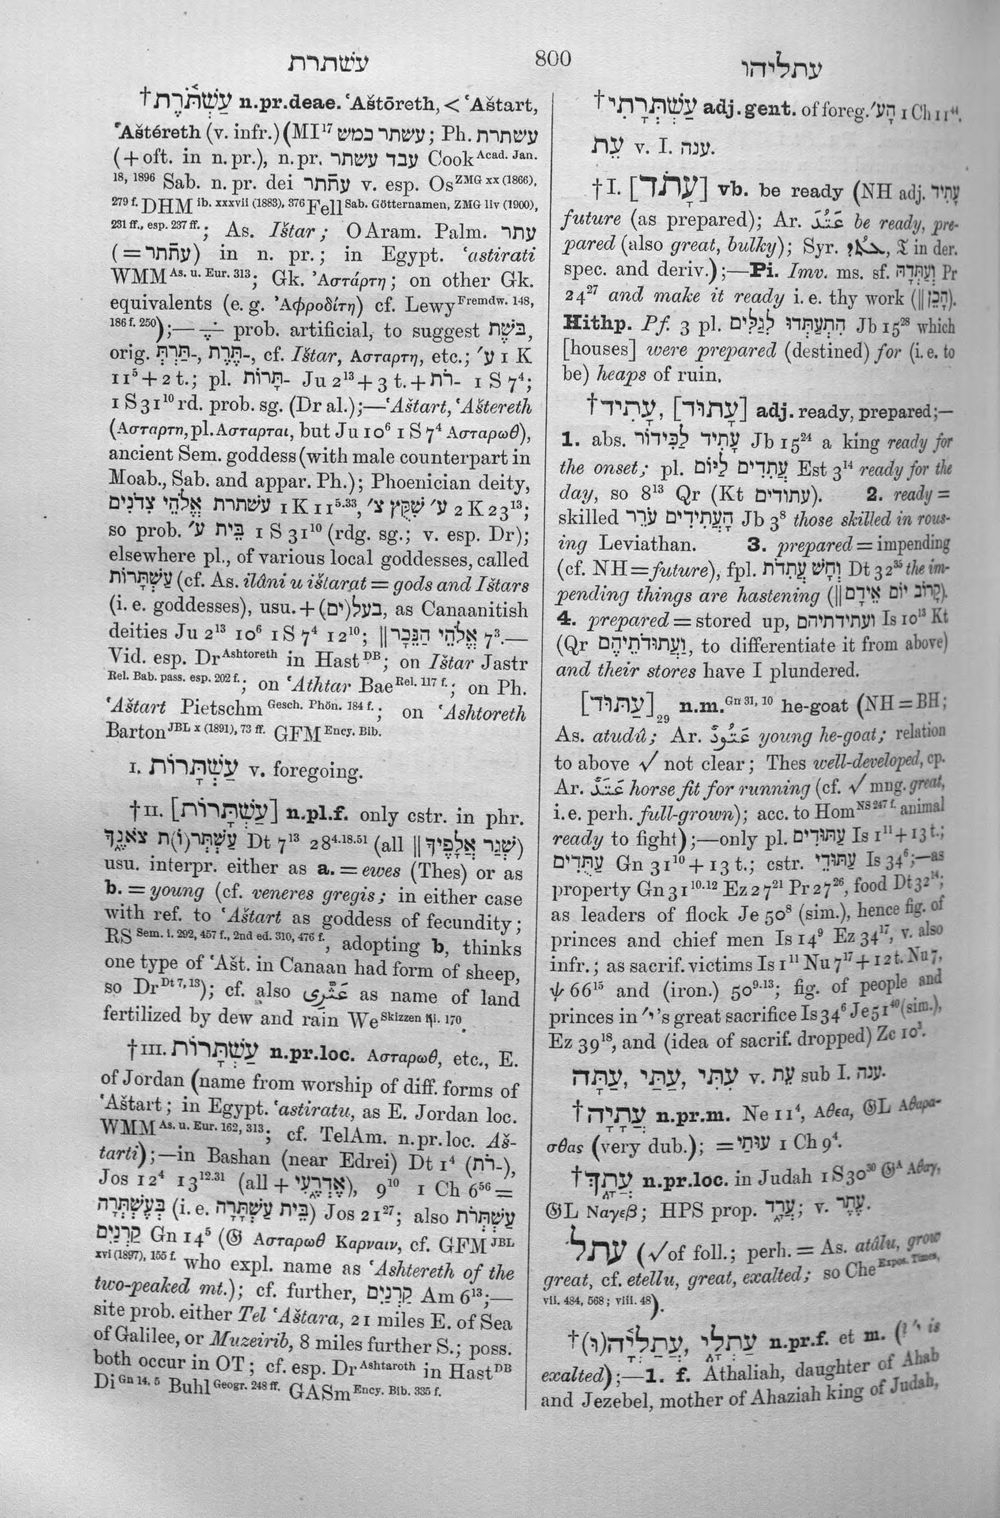 עשתרת
800
עתליהו
†עַשְׁתֹּרֶת n.pr.deae. ʿAštōreth, < ʿAštart,
ʿAštéreth (v. infr.) (MI¹⁷ עשתר כמש; Ph. עשתרת
(+oft. in n.pr.), n.pr. עבד עשתר Cook Acad. Jan.
18, 1896 Sab. n. pr. dei עתֿתר v. esp. Os ZMG xx (1866),
279 f. DHM ib. xxxvii (1883), 376 Fell Sab. Götternamen, ZMG liv (1900),
231 ff., esp. 237 ff.; As. Ištar; OAram. Palm. עתר
(=עתֿתר) in n. pr.; in Egypt. ʿastirati
WMM As. u. Eur. 313; Gk. Ἀστάρτη; on other Gk.
equivalents (e. g. Ἀφροδίτη) cf. Lewy Fremdw. 148,
186 f. 250);— prob. artificial, to suggest בֹּשֶׁת,
orig. -תַּרְתְּ, -תֶּרֶת, cf. Ištar, Ασταρτη, etc.; ע׳ 1 K
11⁵ + 2 t.; pl. -תָּרוֹת Ju 2¹³ + 3 t. + -רֹת 1 S 7⁴;
1 S 31¹⁰ rd. prob. sg. (Dr al.);—ʿAštart, ʿAštereth
(Ασταρτη, pl. Ασταρται, but Ju 10⁶ 1 S 7⁴ Ασταρωθ),
ancient Sem. goddess (with male counterpart in
Moab., Sab. and appar. Ph.); Phoenician deity,
עשתרת אֱלֹהֵי צִדֹנִים 1 K 11⁵·³³, ע׳ שִׁקֻּץ צ׳ 2 K 23¹³;
so prob. בֵּית ע׳ 1 S 31¹⁰ (rdg. sg.; v. esp. Dr);
elsewhere pl., of various local goddesses, called
עַשְׁתָּרוֹת (cf. As. ilâni u ištarat = gods and Ištars
(i. e. goddesses), usu. + בעל(ים), as Canaanitish
deities Ju 2¹³ 10⁶ 1 S 7⁴ 12¹⁰; ‖ אֱלֹהֵי הַנֵּכָר 7³.—
Vid. esp. Dr Ashtoreth in Hast DB; on Ištar Jastr
Rel. Bab. pass. esp. 202 f.; on ʿAthtar Bae Rel. 117 f.; on Ph.
ʿAštart Pietschm Gesch. Phön. 184 f.; on ʿAshtoreth
Barton JBL x (1891), 73 ff. GFM Ency. Bib.
I. עַשְׁתָּרוֹת v. foregoing.
†II. [עַשְׁתָּרוֹת] n.pl.f. only cstr. in phr.
עַשְׁתְּר(וֹ)ת צֹאנֶךָ Dt 7¹³ 28⁴·¹⁸·⁵¹ (all ‖ שְׁגַר אֲלָפֶיךָ)
usu. interpr. either as a. = ewes (Thes) or as
b. = young (cf. veneres gregis; in either case
with ref. to ʿAštart as goddess of fecundity;
RS Sem. i. 292, 457 f., 2nd ed. 310, 476 f., adopting b, thinks
one type of ʿAšt. in Canaan had form of sheep,
so Dr Dt 7, 13); cf. also عَثَّرِى as name of land
fertilized by dew and rain We Skizzen iii. 170.
†III. עַשְׁתָּרוֹת n.pr.loc. Ασταρωθ, etc., E.
of Jordan (name from worship of diff. forms of
ʿAštart; in Egypt. ʿastiratu, as E. Jordan loc.
WMM As. u. Eur. 162, 313; cf. TelAm. n.pr.loc. Aš-
tarti);—in Bashan (near Edrei) Dt 1⁴ (-רֹת),
Jos 12⁴ 13¹²·³¹ (all + אֶדְרֶעִי), 9¹⁰ 1 Ch 6⁵⁶ =
בְּעֶשְׁתְּרָה (i. e. בֵּית עַשְׁתָּרָה) Jos 21²⁷; also עַשְׁתְּרֹת
קַרְנַיִם Gn 14⁵ (𝔊 Ασταρωθ Καρναιν, cf. GFM JBL
xvi (1897), 155 f. who expl. name as ʿAshtereth of the
two-peaked mt.); cf. further, קַרְנַיִם Am 6¹³;—
site prob. either Tel ʿAštara, 21 miles E. of Sea
of Galilee, or Muzeirib, 8 miles further S.; poss.
both occur in OT; cf. esp. Dr Ashtaroth in Hast DB
Di Gn 14, 5 Buhl Geogr. 248 ff. GASm Ency. Bib. 335 f.
†עַשְׁתְּרָתִי adj.gent. of foreg. הָע׳ 1 Ch 11⁴⁴.
עֵת v. I. ענה.
†I. [עָתַד] vb. be ready (NH adj. עָתִיד
future (as prepared); Ar. عَتُدَ be ready, pre-
pared (also great, bulky); Syr. 𝔗 in der.
spec. and deriv.);—Pi. Imv. ms. sf. וְעַתְּדָהּ Pr
24²⁷ and make it ready i. e. thy work (‖ הָכֵן).
Hithp. Pf. 3 pl. הִתְעַתְּדוּ לְגַלִּים Jb 15²⁸ which
[houses] were prepared (destined) for (i. e. to
be) heaps of ruin.
†עָתִיד, [עָתוּד] adj. ready, prepared;—
1. abs. עָתִיד לַכִּידוֹר Jb 15²⁴ a king ready for
the onset; pl. עֲתִדִים לַיּוֹם Est 3¹⁴ ready for the
day, so 8¹³ Qr (Kt עתודים). 2. ready =
skilled הָעֲתִידִים עֹרֵר Jb 3⁸ those skilled in rous-
ing Leviathan. 3. prepared = impending
(cf. NH = future), fpl. וְחָשׁ עֲתִדֹת Dt 32³⁵ the im-
pending things are hastening (‖ קָרוֹב יוֹם אֵידָם).
4. prepared = stored up, ועתידתיהם Is 10¹³ Kt
(Qr וַעֲתוּדֹתֵיהֶם, to differentiate it from above)
and their stores have I plundered.
[עַתּוּד]₂₉ n.m. Gn 31, 10 he-goat (NH = BH;
As. atudû; Ar. عَتُودٌ young he-goat; relation
to above √ not clear; Thes well-developed, cp.
Ar. عَتَدٌ horse fit for running (cf. √ mng. great,
i. e. perh. full-grown); acc. to Hom NS 247 f. animal
ready to fight);—only pl. עַתּוּדִים Is 1¹¹ + 13 t.;
עַתֻּדִים Gn 31¹⁰ + 13 t.; cstr. עַתּוּדֵי Is 34⁶;—as
property Gn 31¹⁰·¹² Ez 27²¹ Pr 27²⁶, food Dt 32¹⁴;
as leaders of flock Je 50⁸ (sim.), hence fig. of
princes and chief men Is 14⁹ Ez 34¹⁷, v. also
infr.; as sacrif. victims Is 1¹¹ Nu 7¹⁷ + 12 t. Nu 7,
ψ 66¹⁵ and (iron.) 50⁹·¹³; fig. of people and
princes in י׳'s great sacrifice Is 34⁶ Je 51⁴⁰ (sim.),
Ez 39¹⁸, and (idea of sacrif. dropped) Zc 10³.
עַתָּה, עַתַּי, עִתִּי v. עֵת sub I. ענה.
†עֲתָיָה n.pr.m. Ne 11⁴, Αθεα, 𝔊L Αθαρα-
σθας (very dub.); = עוּתַי 1 Ch 9⁴.
†עֲתָךְ n.pr.loc. in Judah 1 S 30³⁰ 𝔊ᴬ Αθαγ,
𝔊L Ναγεβ; HPS prop. עֲרָד; v. עֶתֶר.
עתל (√of foll.; perh. = As. atâlu, grow
great, cf. etellu, great, exalted; so Che Expos. Times,
vii. 484, 568; viii. 48).
†עֲתַלְיָה(וּ), עַתְלָי n.pr.f. et m. (י׳ is
exalted);—1. f. Athaliah, daughter of Ahab
and Jezebel, mother of Ahaziah king of Judah,